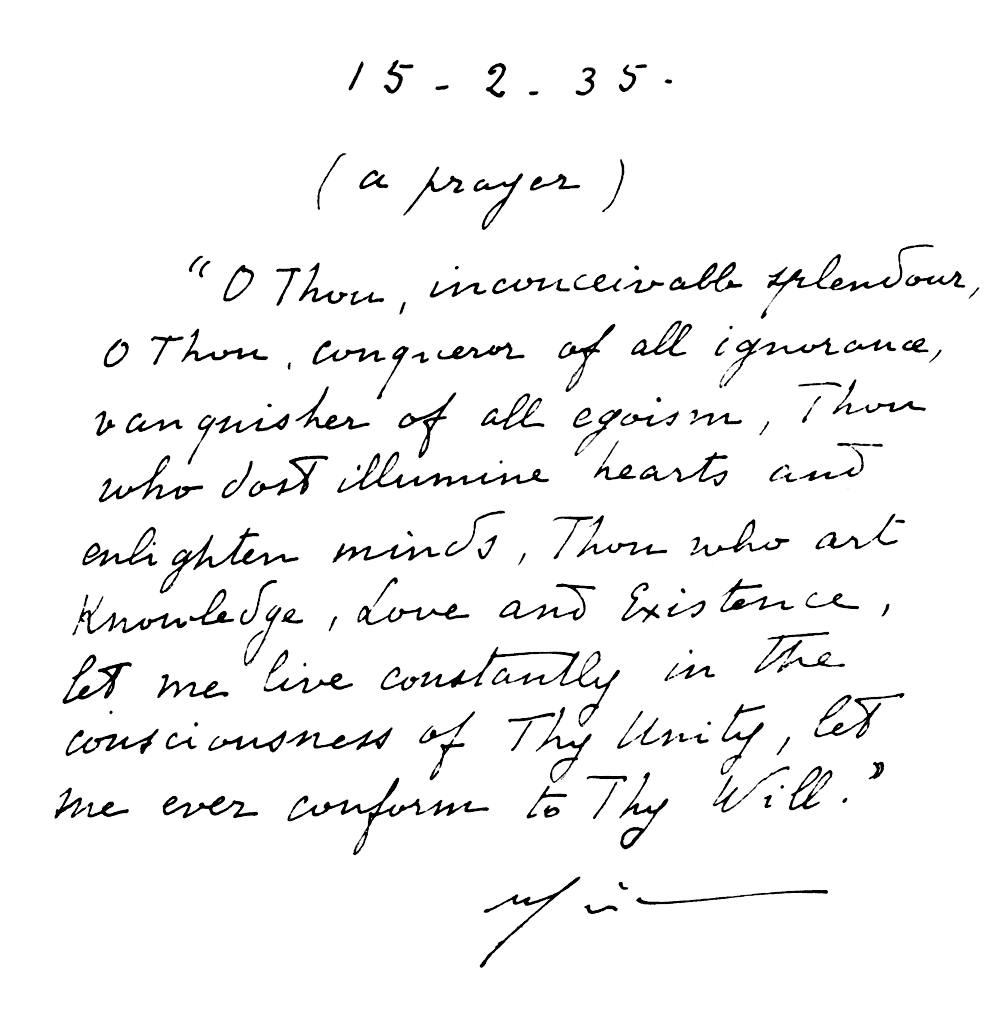 15-2-35.
(a prayer)
"O Thou, inconceivable splendour,
O Thou, conqueror of all ignorance,
vanquisher of all egoism, Thou
who dost illumine hearts and
enlighten minds, Thou who art
Knowledge, Love and Existence,
let me live constantly in the
consciousness of Thy Unity, let
me ever conform to Thy Will."